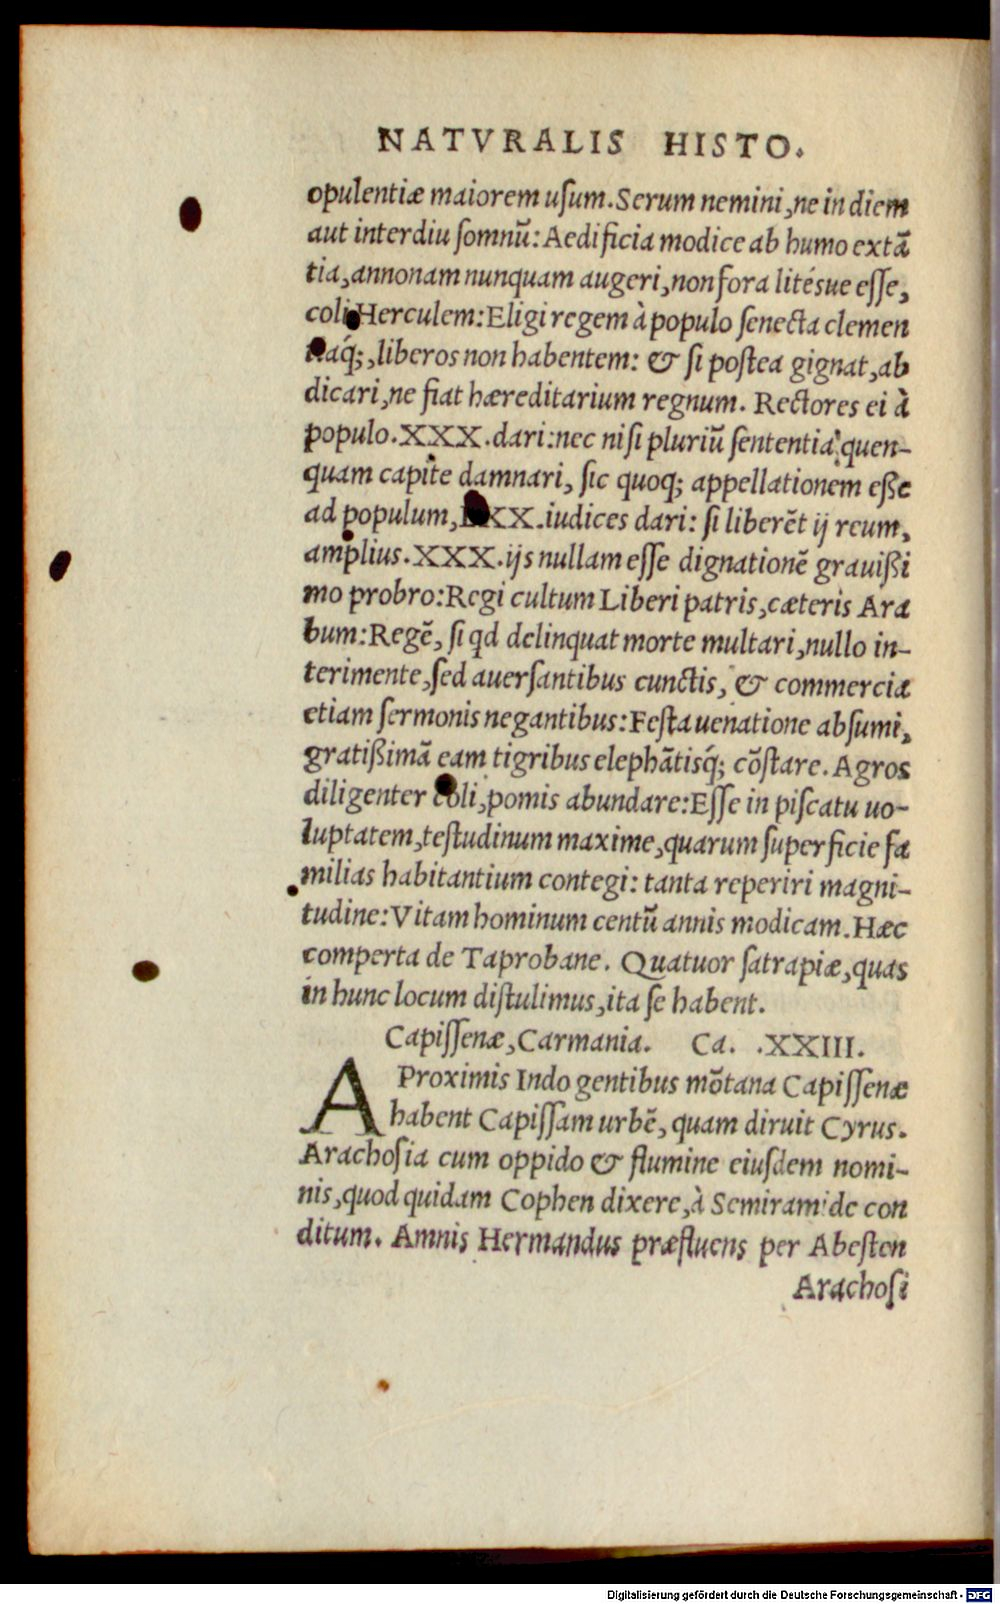 NATVRALIS HISTO.
opulentiæ maiorem uſum. Serum nemini, ne in diem
aut interdiu ſomnũ: Aedificia modice ab humo extã
tia, annonam nunquam augeri, non fora litésue eſſe,
coli Herculem: Eligi regem à populo ſenecta clemen
q́;, liberos non habentem: & ſi poſtea gignat, ab
dicari, ne fiat hæreditarium regnum. Rectores ei à
populo. XXX. dari: nec niſi pluriũ ſententia quen-
quam capite damnari, ſic quoq; appellationem eße
ad populum, iudices dari: ſi liberẽt ij reum,
amplius. XXX. ijs nullam eſſe dignationẽ grauißi
mo probro: Regi cultum Liberi patris, cæteris Ara
bum: Regẽ, ſi qd delinquat morte multari, nullo in-
terimente, ſed auerſantibus cunctis, & commercia
etiam ſermonis negantibus: Feſta uenatione abſumi,
gratißimã eam tigribus elephãtisq́; cõſtare. Agros
diligenter coli, pomis abundare: Eſſe in piſcatu uo-
luptatem, teſtudinum maxime, quarum ſuperficie fa
milias habitantium contegi: tanta reperiri magni-
tudine: Vitam hominum centũ annis modicam. Hæc
comperta de Taprobane. Quatuor ſatrapiæ, quas
in hunc locum diſtulimus, ita ſe habent.
Capiſſenæ, Carmania. Ca. .XXIII.
A Proximis Indo gentibus mõtana Capiſſenæ
habent Capiſſam urbẽ, quam diruit Cyrus.
Arachoſia cum oppido & flumine eiuſdem nomi-
nis, quod quidam Cophen dixere, à Semiramide con
ditum. Amnis Hermandus præfluens per Abeſten
Arachoſi
Digitalisierung gefördert durch die Deutsche Forschungsgemeinschaft - DFG